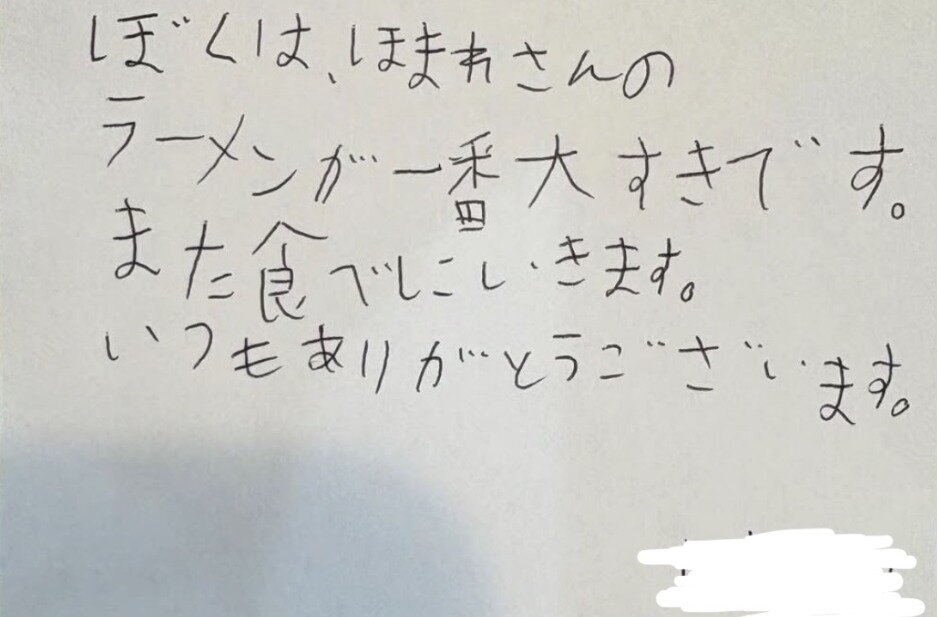 ぼくは、ほまれさんの
ラーメンが一番大すきです。
また食べにいきます。
いつもありがとうございます。